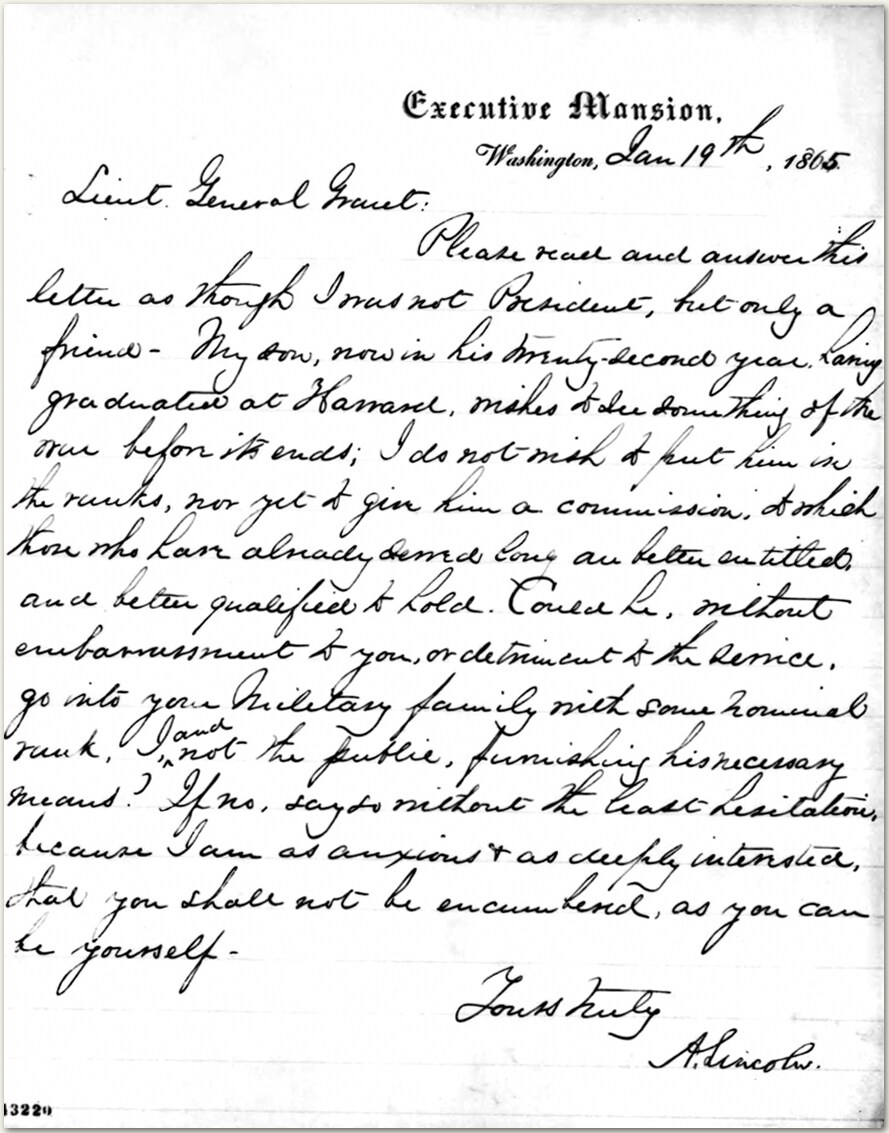 Executive Mansion,
Washington, Jan 19th, 1865.
Lieut. General Grant:
Please read and answer this
letter as though I was not President, but only a
friend - My son, now in his twenty-second year, having
graduated at Harvard, wishes to see something of the
war before its ends; I do not wish to put him in
the ranks, nor yet to give him a commission, to which
those who have already served long are better entitled,
and better qualified to hold. Could he, without
embarrassment to you, or detriment to the service,
go into your Military family with some nominal
rank, I, and not the public, furnishing his necessary
means? If no, say so without the least hesitation,
because I am as anxious & as deeply interested,
that you shall not be encumbered, as you can
be yourself -
Yours truly
A. Lincoln.
13220